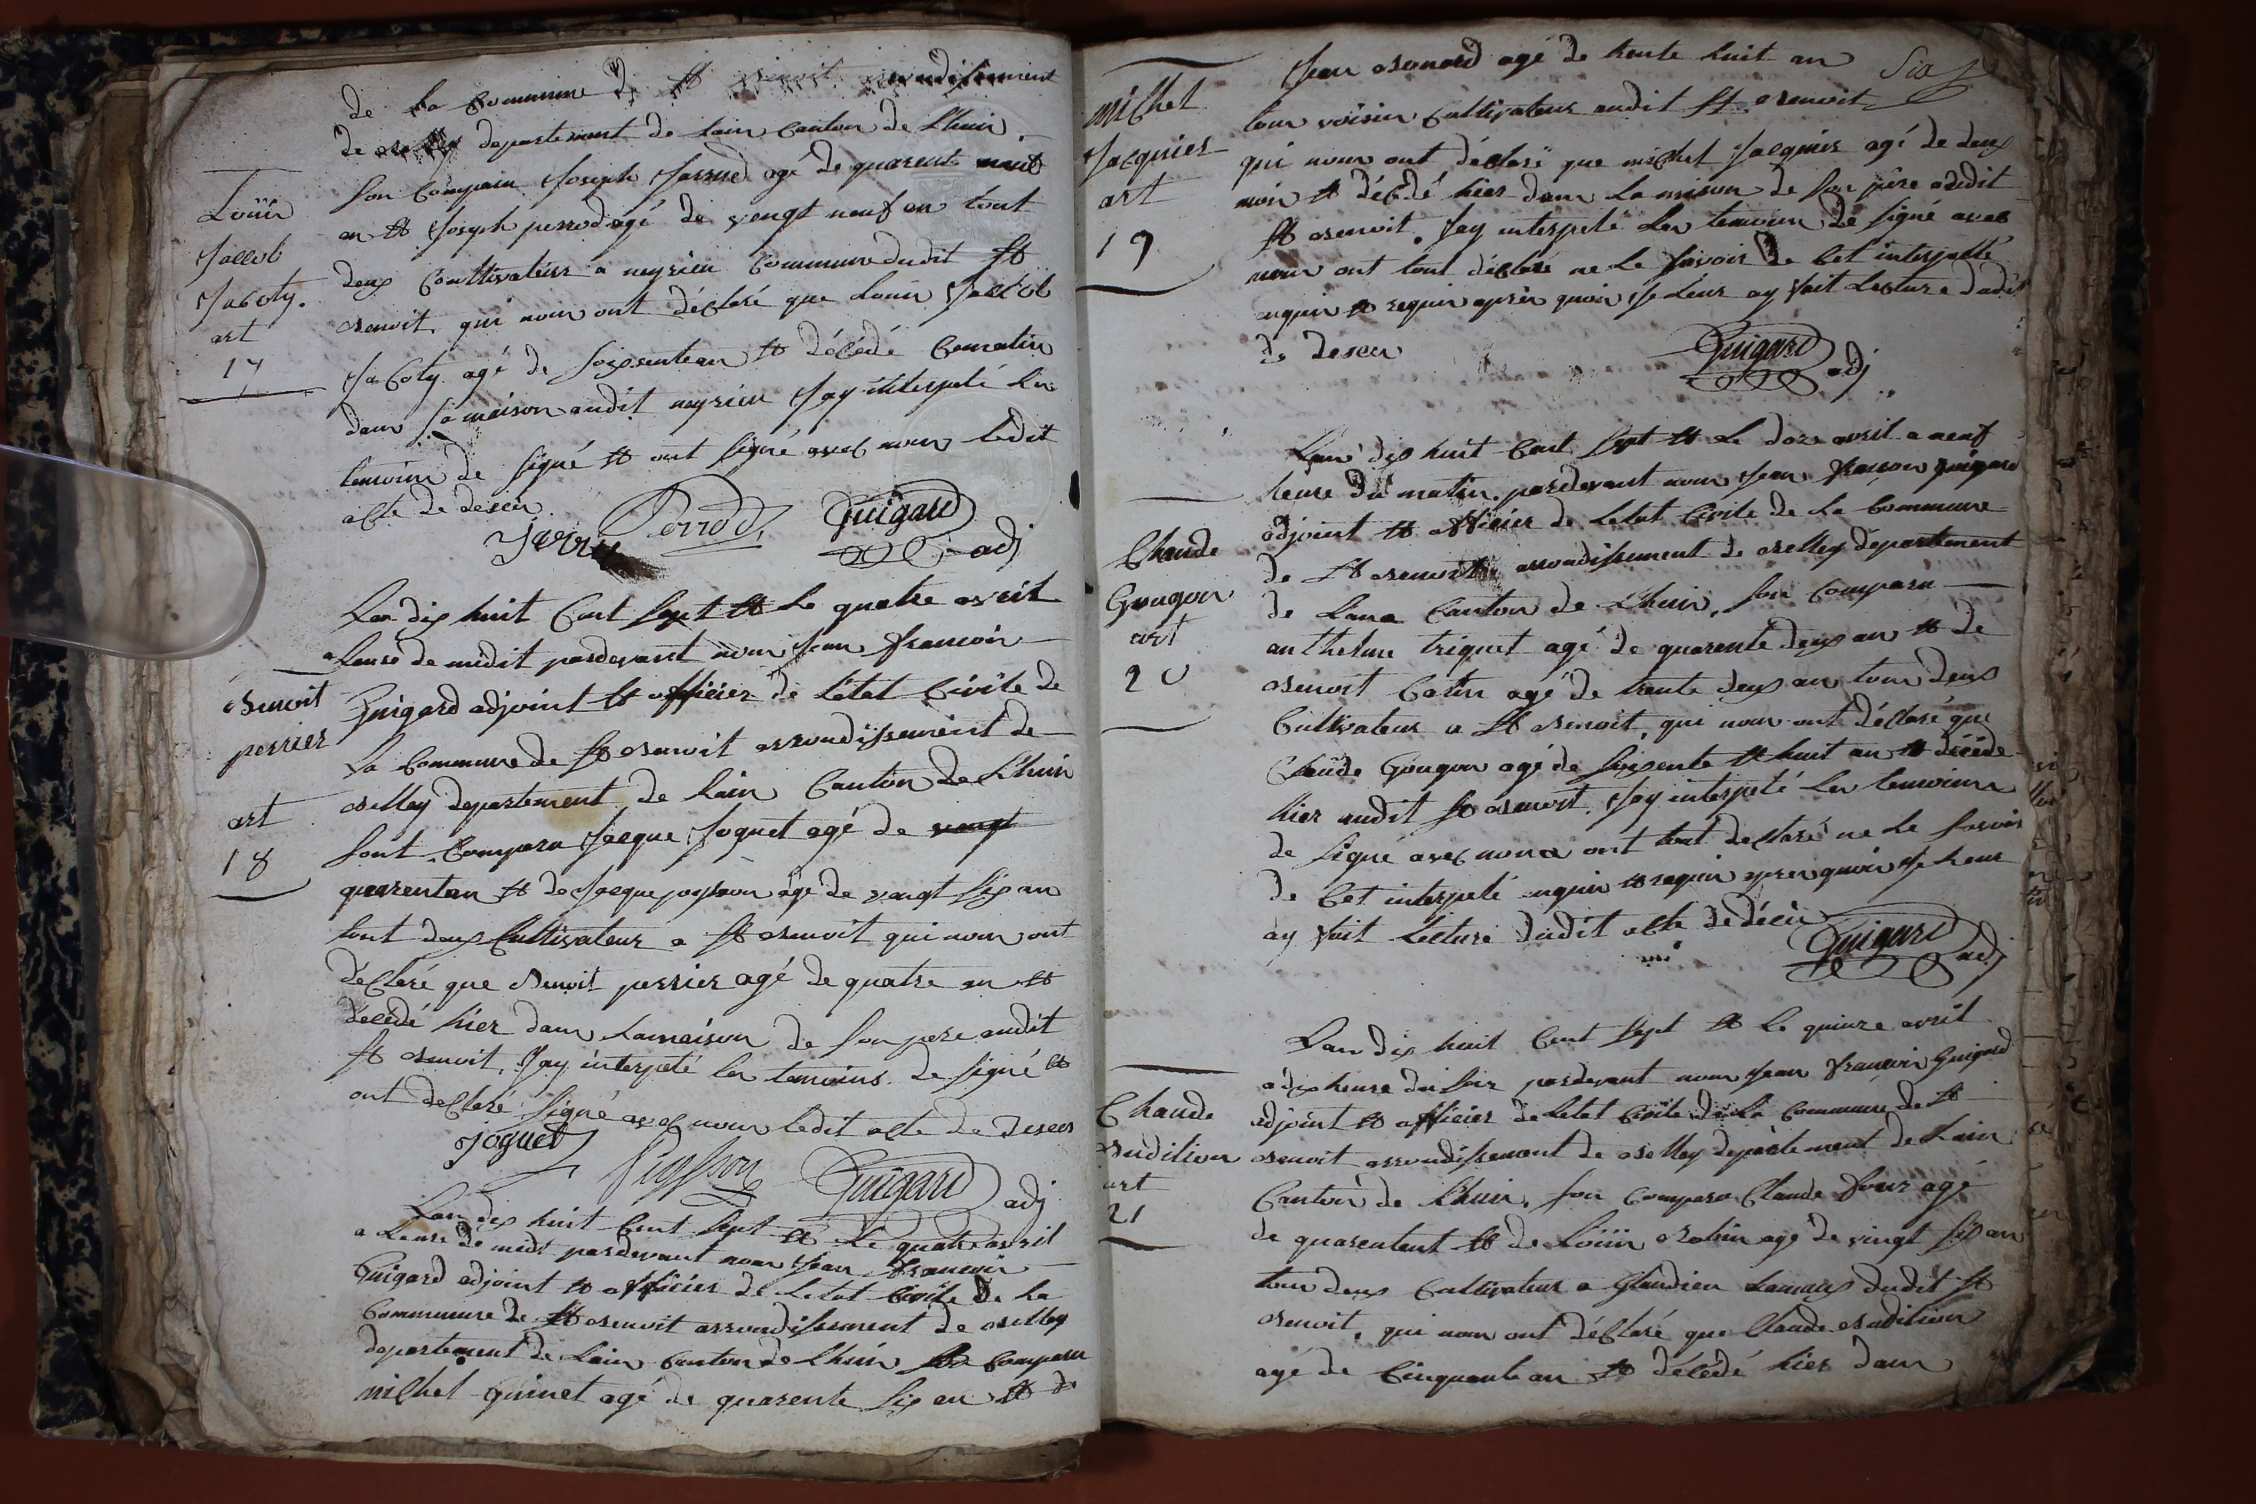 de la Commune de St Benoit arrondissement
de belley departement de lain Canton de Lhuis
Louis
Jallob
Jacoty.
art
17
son Comparu Joseph Jarrud agé de quarente
an et Joseph perrod agé de vengt neuf an tout
deux Coultivateur a neyrieu Commune dudit St
Benoit, qui nous ont déclaré que Louis Jallob
Jacoty agé de soixsente an et décédé Cematin
dans sa maison audit neyrieu Jay interpelé les
temoins de signé et ont signé avec nous ledit
acte de deseis
Perrod Guigard adj
Lan dix huit Cent Sept et le quatre avril
a Leure de midit pardevant nous Jean francois
Benoit
perrier
art
18
Guigard adjoint et officier de Létat Civile de
la Commune de St Benoit arrondissement de
Belley departement de Lain Canton de Lhuis
sont Comparu Jacque Joguet agé de vengt
quarentan et de Jacque poysson agé de vengt six an
tout deux Cultivateur a St Benoit qui nous ont
déclaré que Benoit perrier agé de quatre an et
décédé hier dans Lamaison de son pere audit
St Benoit, Jay interpelé les temoins de signé et
ont déclaré signé avec nous ledit acte de deseis
joguet Poysson Guigard adj
Lan dix huit Cent Sept et le quatre avril
a Leure de midi pardevant nous Jean francois
Guigard adjoint et officier de Letat Civile de la
Commune de St Benoit arrondissement de Belley
departement de Lain Canton de Lhuis son Comparu
michel quinet agé de quarente six an et de
Six
michel
Jacquier
art
19
Jean Benard agé de trente huit an
tous voisin Cultivateur audit St Benoit
qui nous ont déclaré que michel Jacquier agé de deux
mois et décédé hier dans la maison de son père audit
St Benoit. Jay interpelé les temoins de signé avec
nous ont tout déclaré ne le savoir de Cet interpellé
enquis et requis après quois Je Leur ay fait Lecture dudit
de deseis
Guigard adj
Lan dix huit Cent Sept et le doze avril a neuf
heure du matin pardevant nous Jean francois Guigard
Claude
Gougon
art
20
adjoint et officier de Letat Civile de la Commune
de St Benoit arrondissement de Belley departement
de Lain Canton de Lhuis, son Comparu
anthelme triquet agé de quarente deux an et de
Benoit Cottin agé de trente deux an tous deux
Cultivateur a St Benoit, qui nous ont déclaré que
Claude Gougon agé de soixente et huit an et décédé
hier audit St Benoit Jay interpelé les temoins
de signé avec nous ont tout déclaré ne le savoir
de Cet interpelé enquis et requis apres quois Je Leur
ay fait Lecture dudit acte de décis
Guigard adj
Lan dix huit Cent Sept et le quinze avril
a dix heure du soir pardevant nous Jean francois Guigard
Claude
Budition
art
21
adjoint et officier de Letat Civile de la Commune de St
Benoit arrondissement de Belley departement de Lain
Canton de Lhuis, son Comparu Claude four agé
de quarentent et de Loüis Robin agé de vingt six an
tous deux Cultivateur a Glandieu hamaux dudit St
Benoit, qui nous ont déclaré que Claude Budition
agé de Cinquante an et décédé hier dans